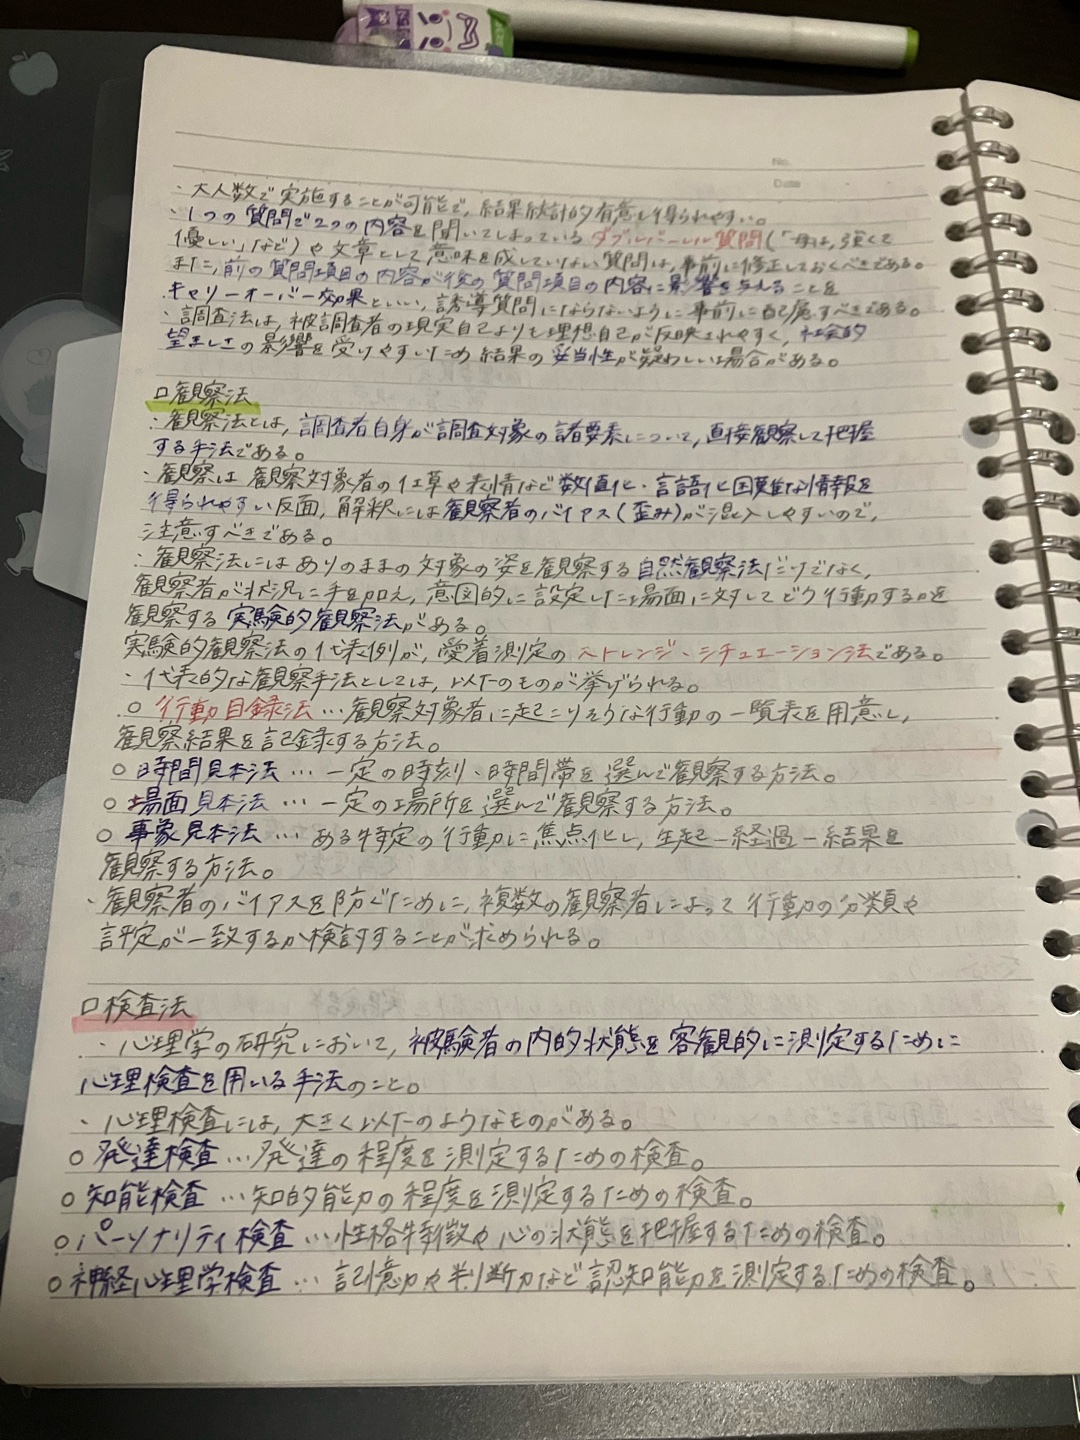 No.
Date
・大人数で実施することが可能で、結果統計的有意し得られやすい。
・1つの質問で2つの内容を聞いてしまっているダブルバーレル質問(「母は、強くて
優しい」など)や文章として意味を成していない質問は、事前に修正しておくべきである。
また、前の質問項目の内容が後の質問項目の内容に影響を与えることを
キャリーオーバー効果といい、誘導質問にならないように事前に配慮すべきである。
・調査法は、被調査者の現実自己よりも理想自己が反映されやすく、社会的
望ましさの影響を受けやすいため結果の妥当性が疑わしい場合がある。
□観察法
・観察法とは、調査者自身が調査対象の諸要素について、直接観察して把握
する手法である。
・観察は観察対象者の仕草や表情など数値化・言語化困難な情報を
得られやすい反面、解釈には観察者のバイアス(歪み)が混入しやすいので、
注意すべきである。
・観察法にはありのままの対象の姿を観察する自然観察法だけでなく、
観察者が状況に手を加え、意図的に設定した場面に対してどう行動するかを
観察する実験的観察法がある。
実験的観察法の代表例が、愛着測定のストレンジ・シチュエーション法である。
・代表的な観察手法としては、以下のものが挙げられる。
○行動目録法…観察対象者に起こりそうな行動の一覧表を用意し、
観察結果を記録する方法。
○時間見本法…一定の時刻、時間帯を選んで観察する方法。
○場面見本法…一定の場所を選んで観察する方法。
○事象見本法…ある特定の行動に焦点化し、生起-経過-結果を
観察する方法。
・観察者のバイアスを防ぐために、複数の観察者によって行動の分類や
評定が一致するか検討することが求められる。
□検査法
・心理学の研究において、被験者の内的状態を客観的に測定するために
心理検査を用いる手法のこと。
・心理検査には、大きく以下のようなものがある。
○発達検査…発達の程度を測定するための検査。
○知能検査…知的能力の程度を測定するための検査。
○パーソナリティ検査…性格特徴や心の状態を把握するための検査。
○神経心理学検査…記憶力や判断力など認知能力を測定するための検査。